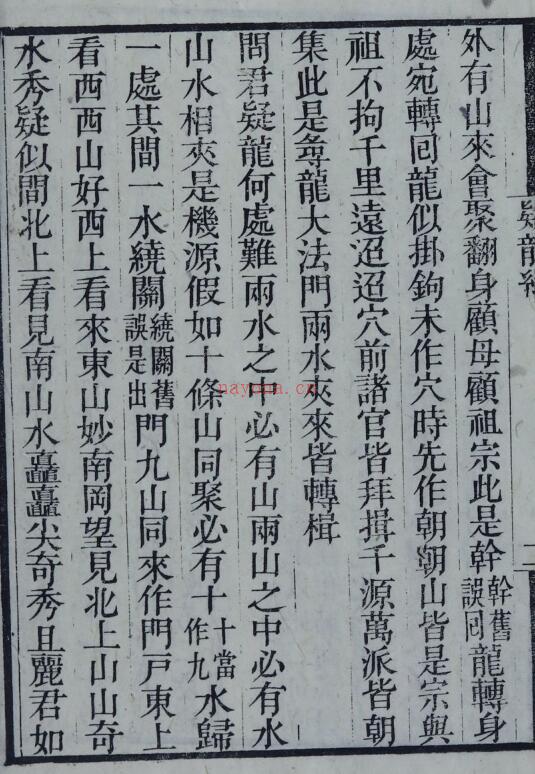 疑龍經
二
外有山來會聚翻身顧母顧祖宗此是幹幹舊誤回龍轉身
處宛轉回龍似掛鉤未作穴時先作朝朝山皆是宗與
祖不拘千里遠迢迢穴前諸官皆拜揖千源萬派皆朝
集此是尋龍大法門兩水夾來皆轉揖
問君疑龍何處難兩水之中必有山兩山之中必有水
山水相夾是機源假如十條山同聚必有十十當作九水歸
一處其間一水繞關繞關舊誤是出門九山同來作門戶東上
看西西山好西上看來東山妙南岡望見北上山山奇
水秀疑似間北上看見南山水矗矗尖奇秀且麗君如
nayona.cn